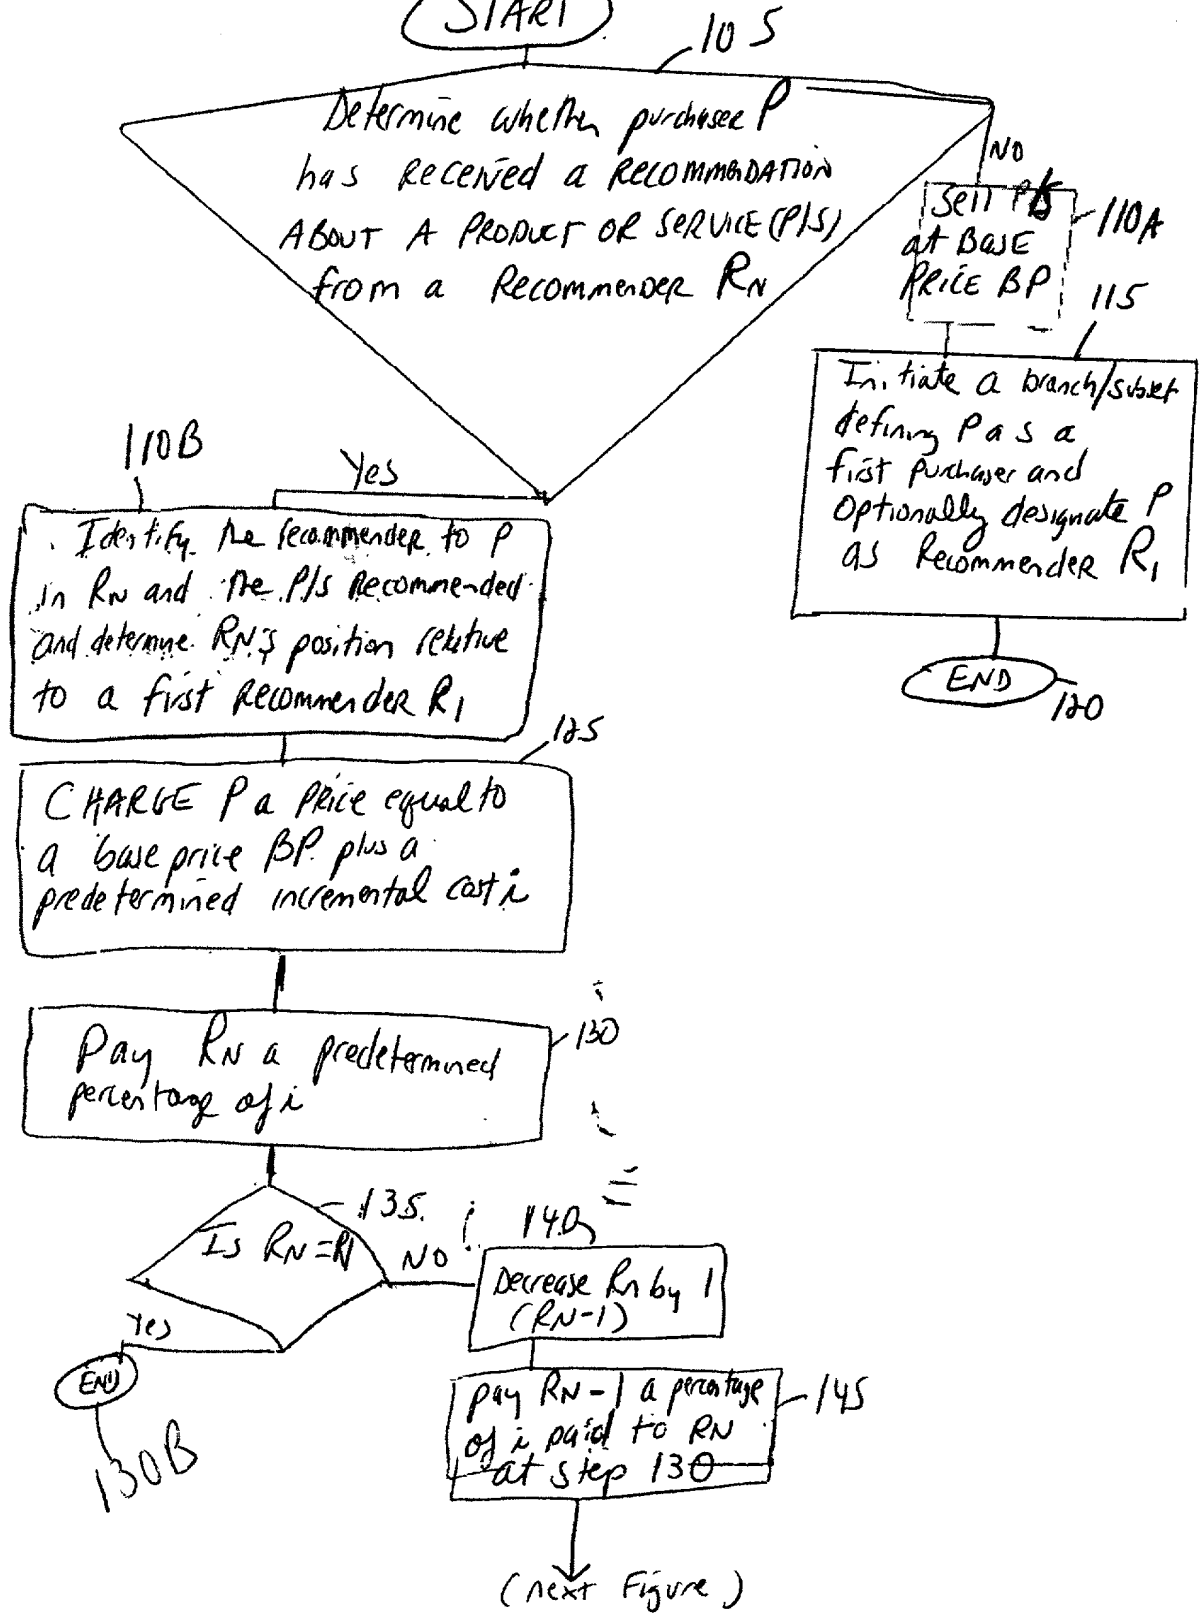 START
105
Determine whether purchaser P
has Received a RECOMMENDATION
ABOUT A PRODUCT OR SERVICE (P/S)
from a Recommender RN
NO
Sell P/S
at BASE
PRICE BP
110A
115
Initiate a branch/subset
defining P as a
first purchaser and
Optionally designate P
as Recommender R1
END
120
110B
Yes
Identify the recommender to P
in RN and the P/S Recommended
and determine RN's position relative
to a first Recommender R1
125
CHARGE P a PRICE equal to
a base price BP plus a
predetermined incremental cost i
130
Pay RN a predetermined
percentage of i
135.
Is RN=R1
NO
140
Decrease Rn by 1
(RN-1)
Yes
END
130B
pay RN-1 a percentage
of i paid to RN
at step 130
145
(next Figure)